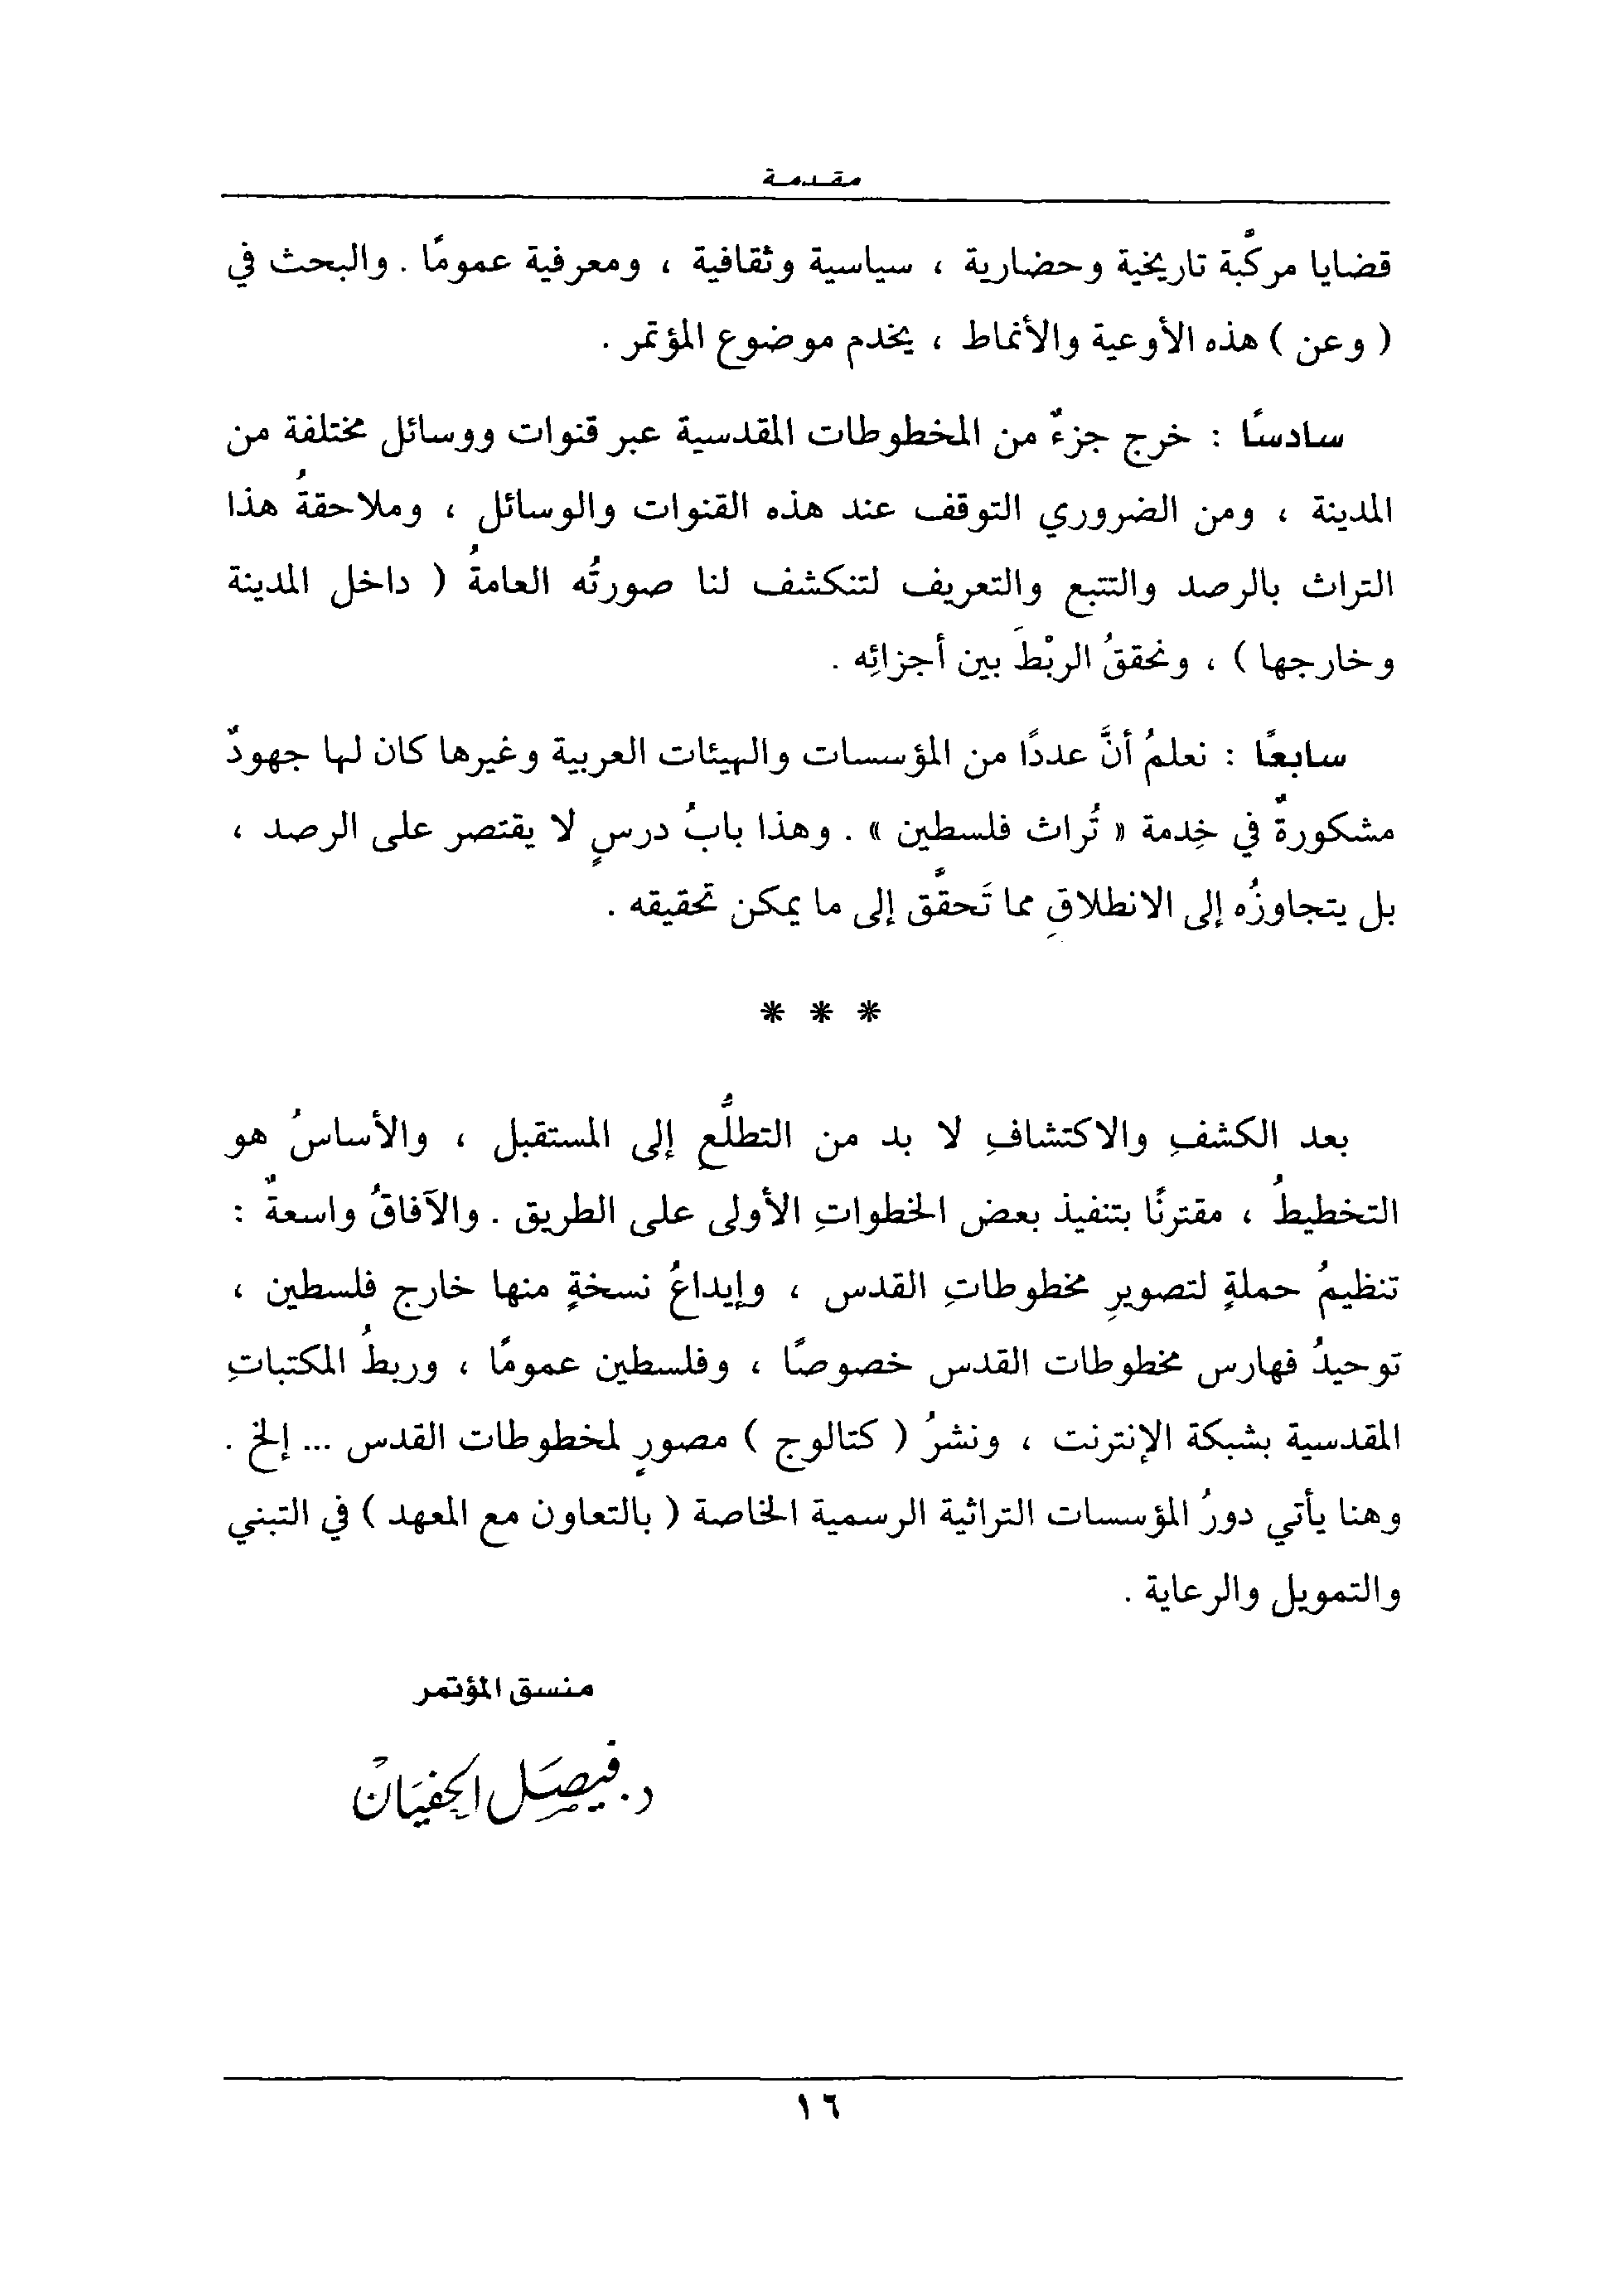 مقدمة
قضايا مركَّبة تاريخية وحضارية ، سياسية وثقافية ، ومعرفية عمومًا . والبحث في
( وعن ) هذه الأوعية والأنماط ، يخدم موضوع المؤتمر .
سادسًا : خرج جزءٌ من المخطوطات المقدسية عبر قنوات ووسائل مختلفة من
المدينة ، ومن الضروري التوقف عند هذه القنوات والوسائل ، وملاحقةُ هذا
التراث بالرصد والتتبع والتعريف لتنكشف لنا صورتُه العامةُ ( داخل المدينة
وخارجها ) ، ونحققُ الربْطَ بين أجزائِه .
سابعًا : نعلمُ أنَّ عددًا من المؤسسات والهيئات العربية وغيرها كان لها جهودٌ
مشكورةٌ في خِدمة « تُراث فلسطين » . وهذا بابُ درسٍ لا يقتصر على الرصد ،
بل يتجاوزُه إلى الانطلاقِ مما تَحقَّق إلى ما يمكن تحقيقه .
* * *
بعد الكشفِ والاكتشافِ لا بد من التطلُّعِ إلى المستقبل ، والأساسُ هو
التخطيطُ ، مقترنًا بتنفيذ بعض الخطواتِ الأولى على الطريق . والآفاقُ واسعةٌ :
تنظيمُ حملةٍ لتصويرِ مخطوطاتِ القدس ، وإيداعُ نسخةٍ منها خارج فلسطين ،
توحيدُ فهارس مخطوطات القدس خصوصًا ، وفلسطين عمومًا ، وربطُ المكتباتِ
المقدسية بشبكة الإنترنت ، ونشرُ ( كتالوج ) مصورٍ لمخطوطات القدس ... إلخ .
وهنا يأتي دورُ المؤسسات التراثية الرسمية الخاصة ( بالتعاون مع المعهد ) في التبني
والتمويل والرعاية .
منسق المؤتمر
د. فيصَل الحفيَان
١٦